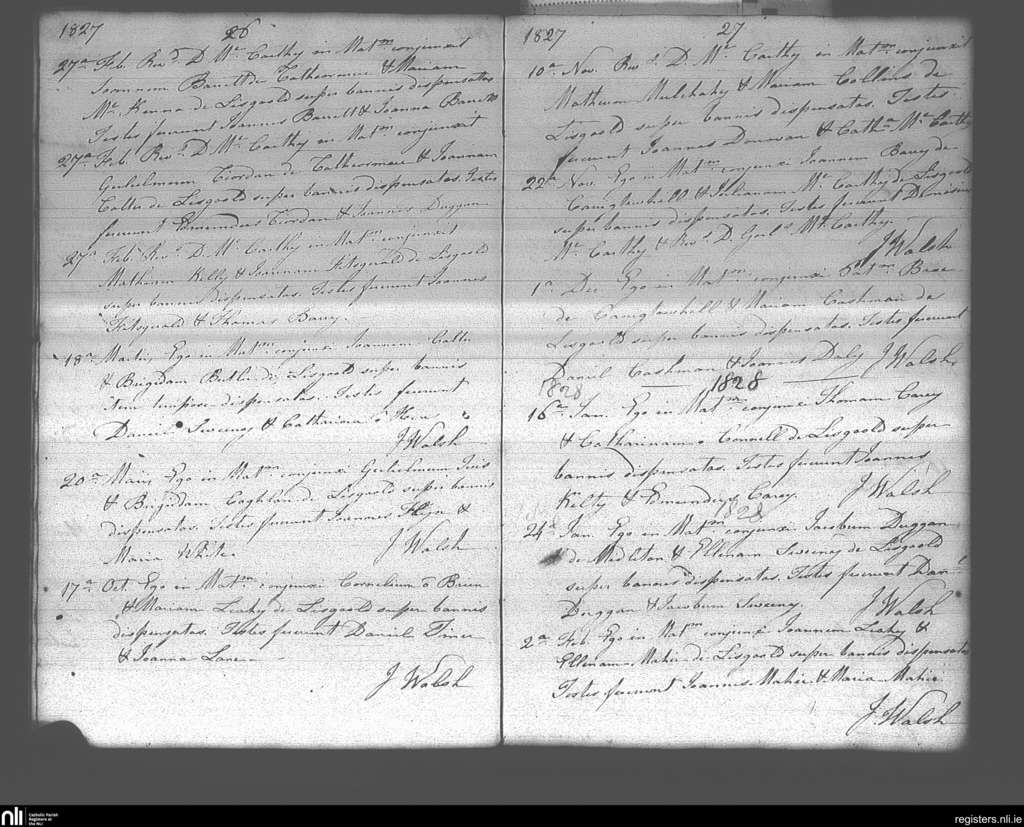 1827 26
27a Feb. Revd. D. Mc. Carthy in Matm conjunxit
Joannem Barrett de & Mariam
Mc. Kenna de Lisgoold super bannis dispensatas
Testes fuerunt Joannes Barrett & Joanna Barrett
27a Feb. Revd. D. Mc. Carthy in Matm conjunxit
Gulielmum Riordan de & Joannam
de Lisgoold super bannis dispensatas. Testes
fuerunt Edmundus Riordan & Joannes Duggan
27a Feb. Revd. D. Mc. Carthy in Matm conjunxit
Matheum Kelly & Joannam Fitzgerald de Lisgoold
super bannis dispensatas. Testes fuerunt Joannes
Fitzgerald & Thomas Barry.
18a Martii, Ego in Matm. conjunxi Joannem
& Brigidam Butler de Lisgoold super bannis
tempore dispensatas. Testes fuerunt
Daniel Sweeney & Catharina
J Walsh
20a Maii, Ego in Matm. conjunxi Gulielmum
& Brigidam Coghlan de Lisgoold super bannis
dispensatas. Testes fuerunt Joannes &
Maria White. J Walsh
17a Oct. Ego in Matm. conjunxi Cornelium ō Brien
& Mariam Leahy de Lisgoold super bannis
dispensatas. Testes fuerunt Daniel
& Joanna Lane.
J Walsh
1827 27
10a Nov. Revd. D. Mc. Carthy in Matm conjunxit
Matheum Mulchahy & Mariam Collins de
Lisgoold super bannis dispensatas. Testes
fuerunt Joannes Donovan & Catha. Mc. Carthy
22a Nov. Ego in Matm conjunxi Joannem Barry de
& Julianam Mc. Carthy de Lisgoold
super bannis dispensatas. Testes fuerunt Dionisius
Mc. Carthy & Revd. D. Mc. Carthy.
J Walsh
1a Dec Ego in Matm. conjunxi Patm.
de & Mariam Cashman de
Lisgoold super bannis dispensatas. Testes fuerunt
Daniel Cashman & Joannes Daly J Walsh
1828 1828
16a Jan. Ego in Matm. conjunxi Thomam Carey
& Catharinam ō Connell de Lisgoold super
bannis dispensatas. Testes fuerunt Joannes
Kelly & Edmundus Carey. J Walsh
1828
24a Jan. Ego in Matm conjunxi Jacobum Duggan
de Midleton & Ellenam Sweeney de Lisgoold
super bannis dispensatas. Testes fuerunt Danl
Duggan & Jacobum Sweeny. J Walsh
2a Feb. Ego in Matm conjunxi Joannem Leahy &
Ellenam Maher de Lisgoold super bannis dispensatas
Testes fuerunt Joannes Maher & Maria Maher.
J. Walsh
nli Catholic Parish
Registers at
the NLI
registers.nli.ie